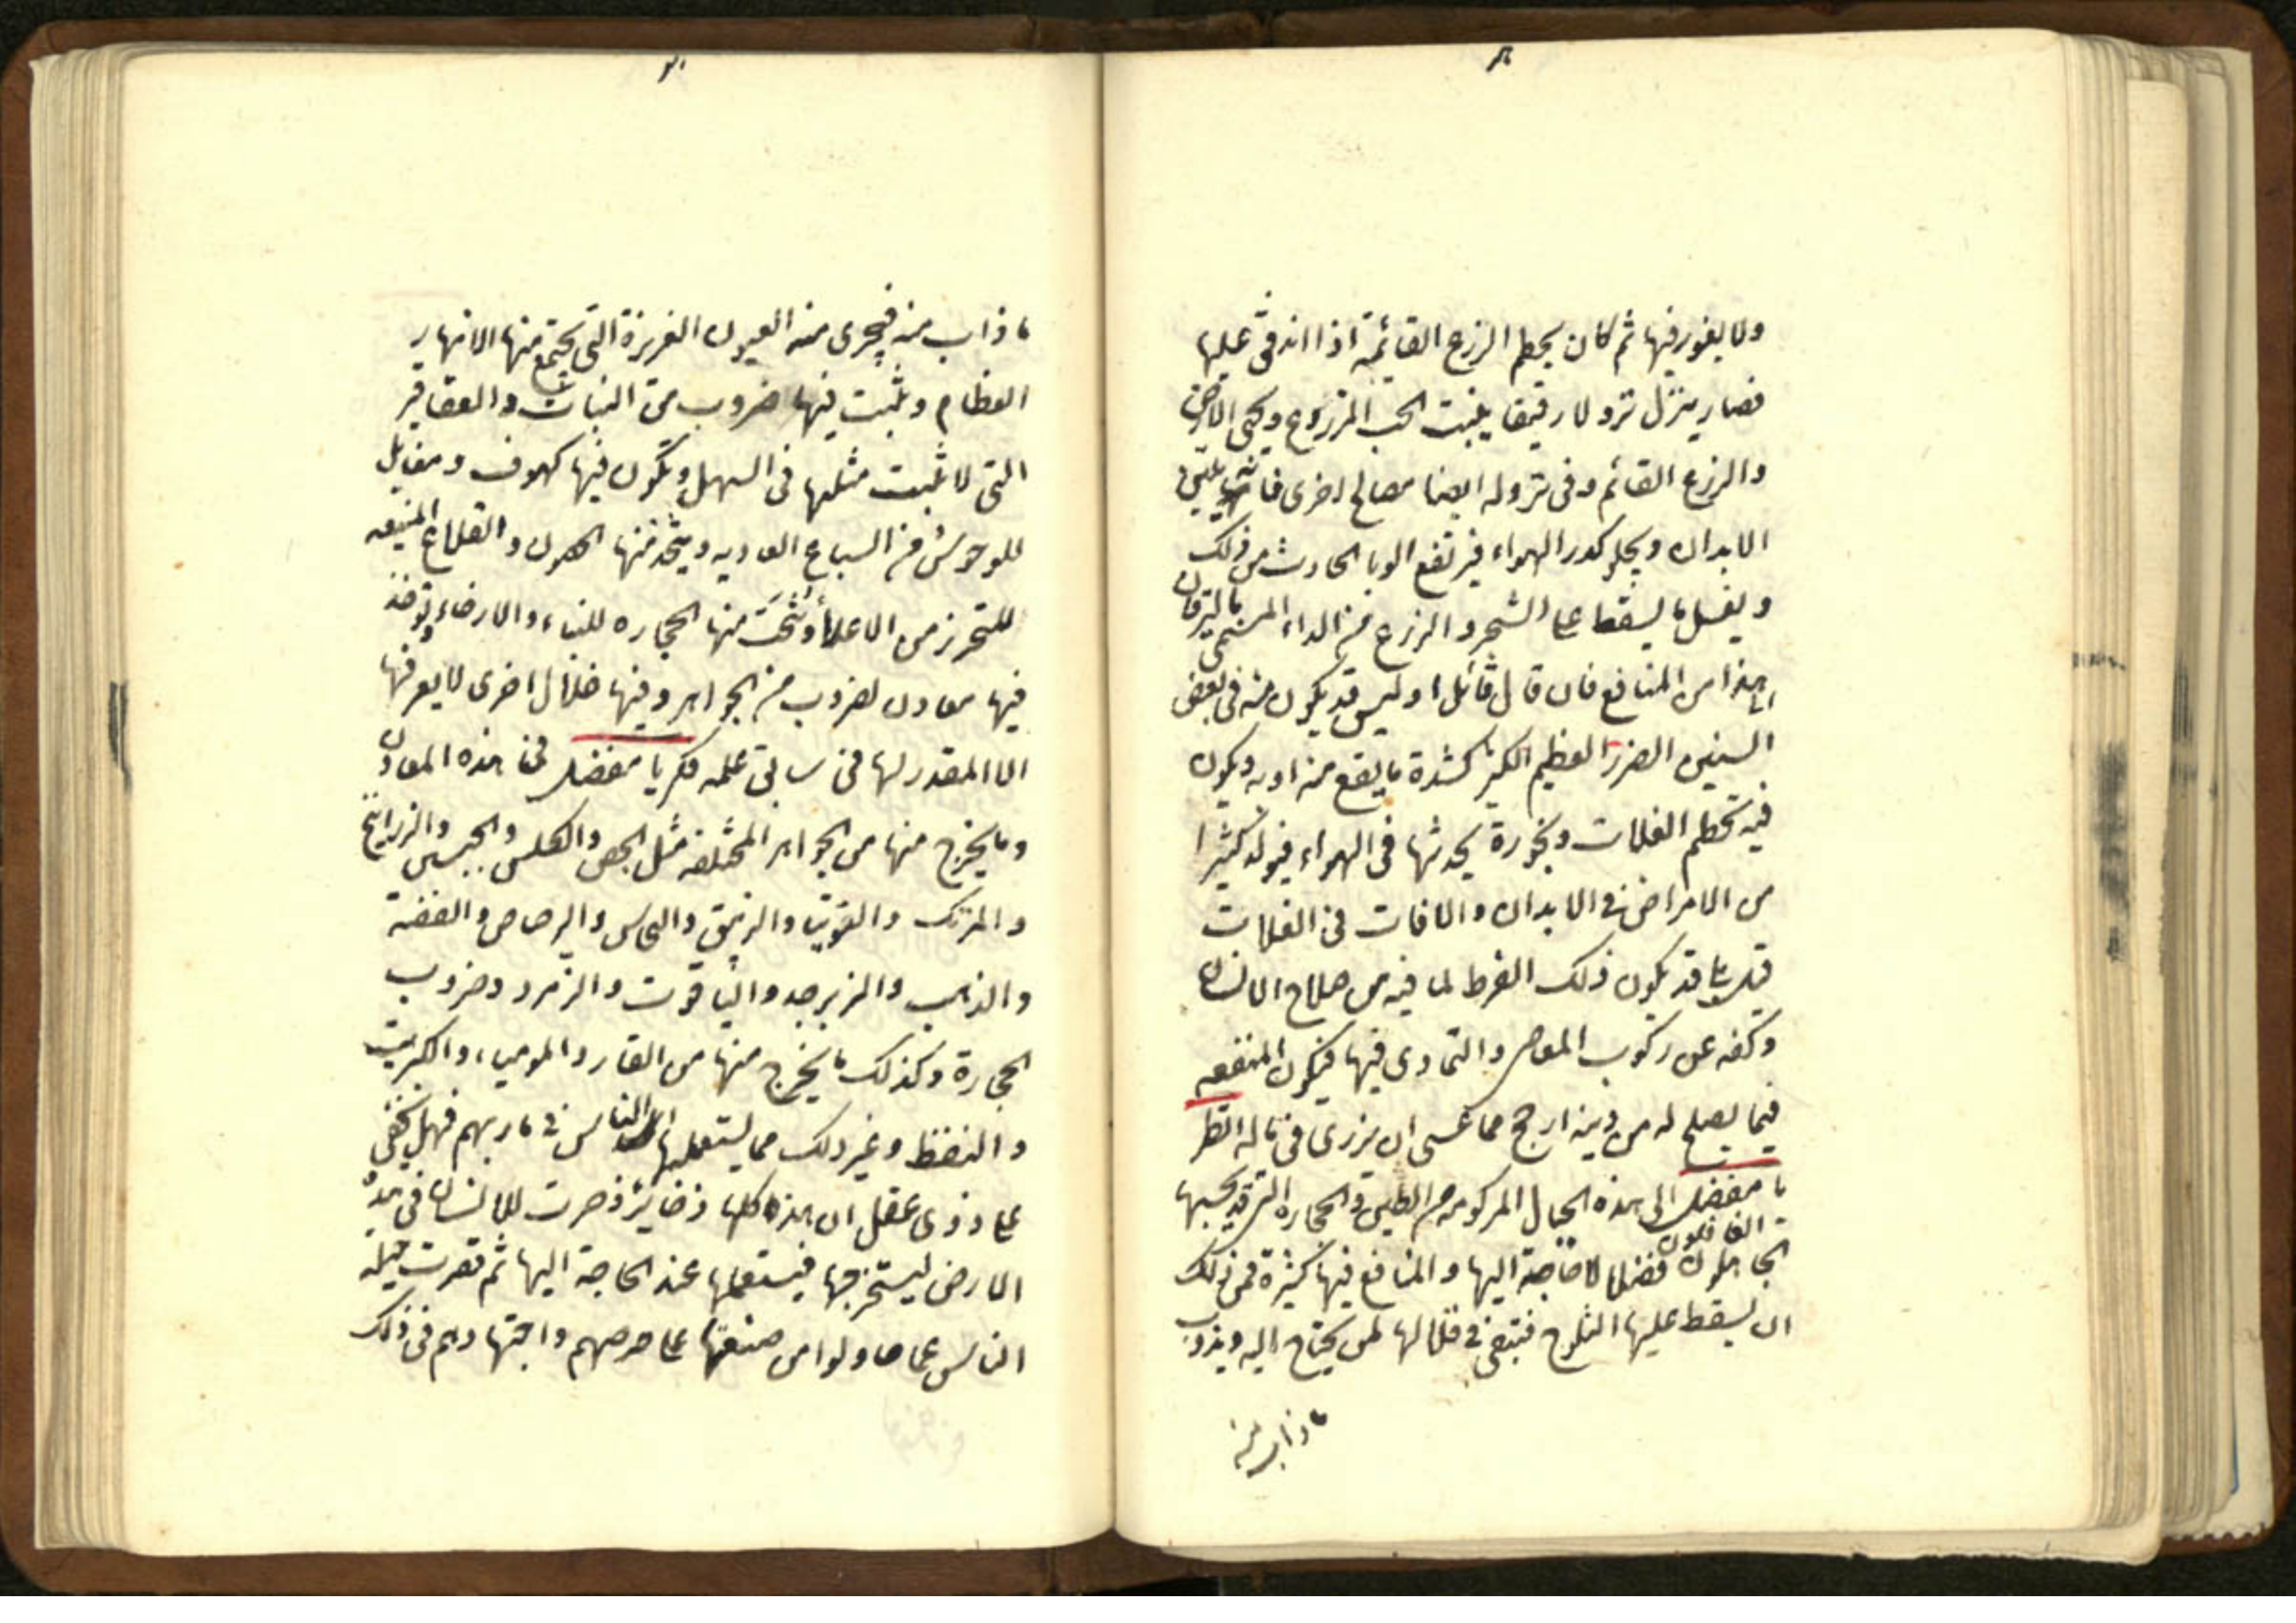 ولا يغور فيها ثم كان يحطم الزرع القائمة اذا اندفق عليها
فصار ينزل نزولا رقيقا فينبت الحب المزروع ويحيى الارض
والزرع القائم وفى نزوله ايضا مصالح اخرى فانه يلين
الابدان ويجلو كدر الهواء فيرتفع الوبا الحادث من ذلك
ويغسل ما يسقط على الشجر والزرع من الداء المسمى باليرقان
الى اشباه هذا من المنافع فان قال قائل اوليس قد يكون منه فى بعض
السنين الضرر العظيم الكثير لشدة ما يقع منه او برد يكون
فيه تحطم الغلات وبخورة يحدثها فى الهواء فيولد كثيرا
من الامراض فى الابدان والافات فى الغلات
قيل بلى قد يكون ذلك الفرط لما فيه من صلاح الانسان
وكفه عن ركوب المعاصى والتمادى فيها فيكون المنفعه
فيما يصلح له من دينه ارجح مما عسى ان يزرى فى ماله انظر
يا مفضل الى هذه الجبال المركومه من الطين والحجاره التى قد يحسبها
الغافلون
الجاهلون فضلا لا حاجة اليها والمنافع فيها كثيرة فمن ذلك
ان يسقط عليها الثلوج فتبقى فى قلالها لمن يحتاج اليه ويذوب
ما ذاب منه
ما ذاب منه فيجرى منه العيون الغزيرة التى تجتمع منها الانهار
العظام وينبت فيها ضروب من النبات والعقاقير
التى لا ينبت مثلها فى السهل ويكون فيها كهوف ومقايل
للوحوش من السباع العاديه ويتخذ منها الحصون والقلاع المنيعه
للتحرز من الاعداء وينحت منها الحجاره للبناء والارحاء ويوجد
فيها معادن لضروب من الجواهر وفيها خلال اخرى لا يعرفها
الا المقدر لها فى سابق علمه فكر يا مفضل فى هذه المعادن
وما يخرج منها من الجواهر المختلفه مثل الجص والكلس والجبسين والزرانيخ
والمرتك والقونيا والزيبق والنحاس والرصاص والفضة
والذهب والزبرجد والياقوت والزمرد وضروب
الحجارة وكذلك ما يخرج منها من القار والموميا والكبريت
والنفط وغير ذلك مما يستعملها الناس فى ماربهم فهل يخفى
على ذوى عقل ان هذه كلها ذخاير ذخرت للانسان فى هذه
الارض ليستخرجها فيستعملها عند الحاجة اليها ثم قصرت حيلة
الناس عما حاولوا من صنعتها على حرصهم واجتهادهم فى ذلك